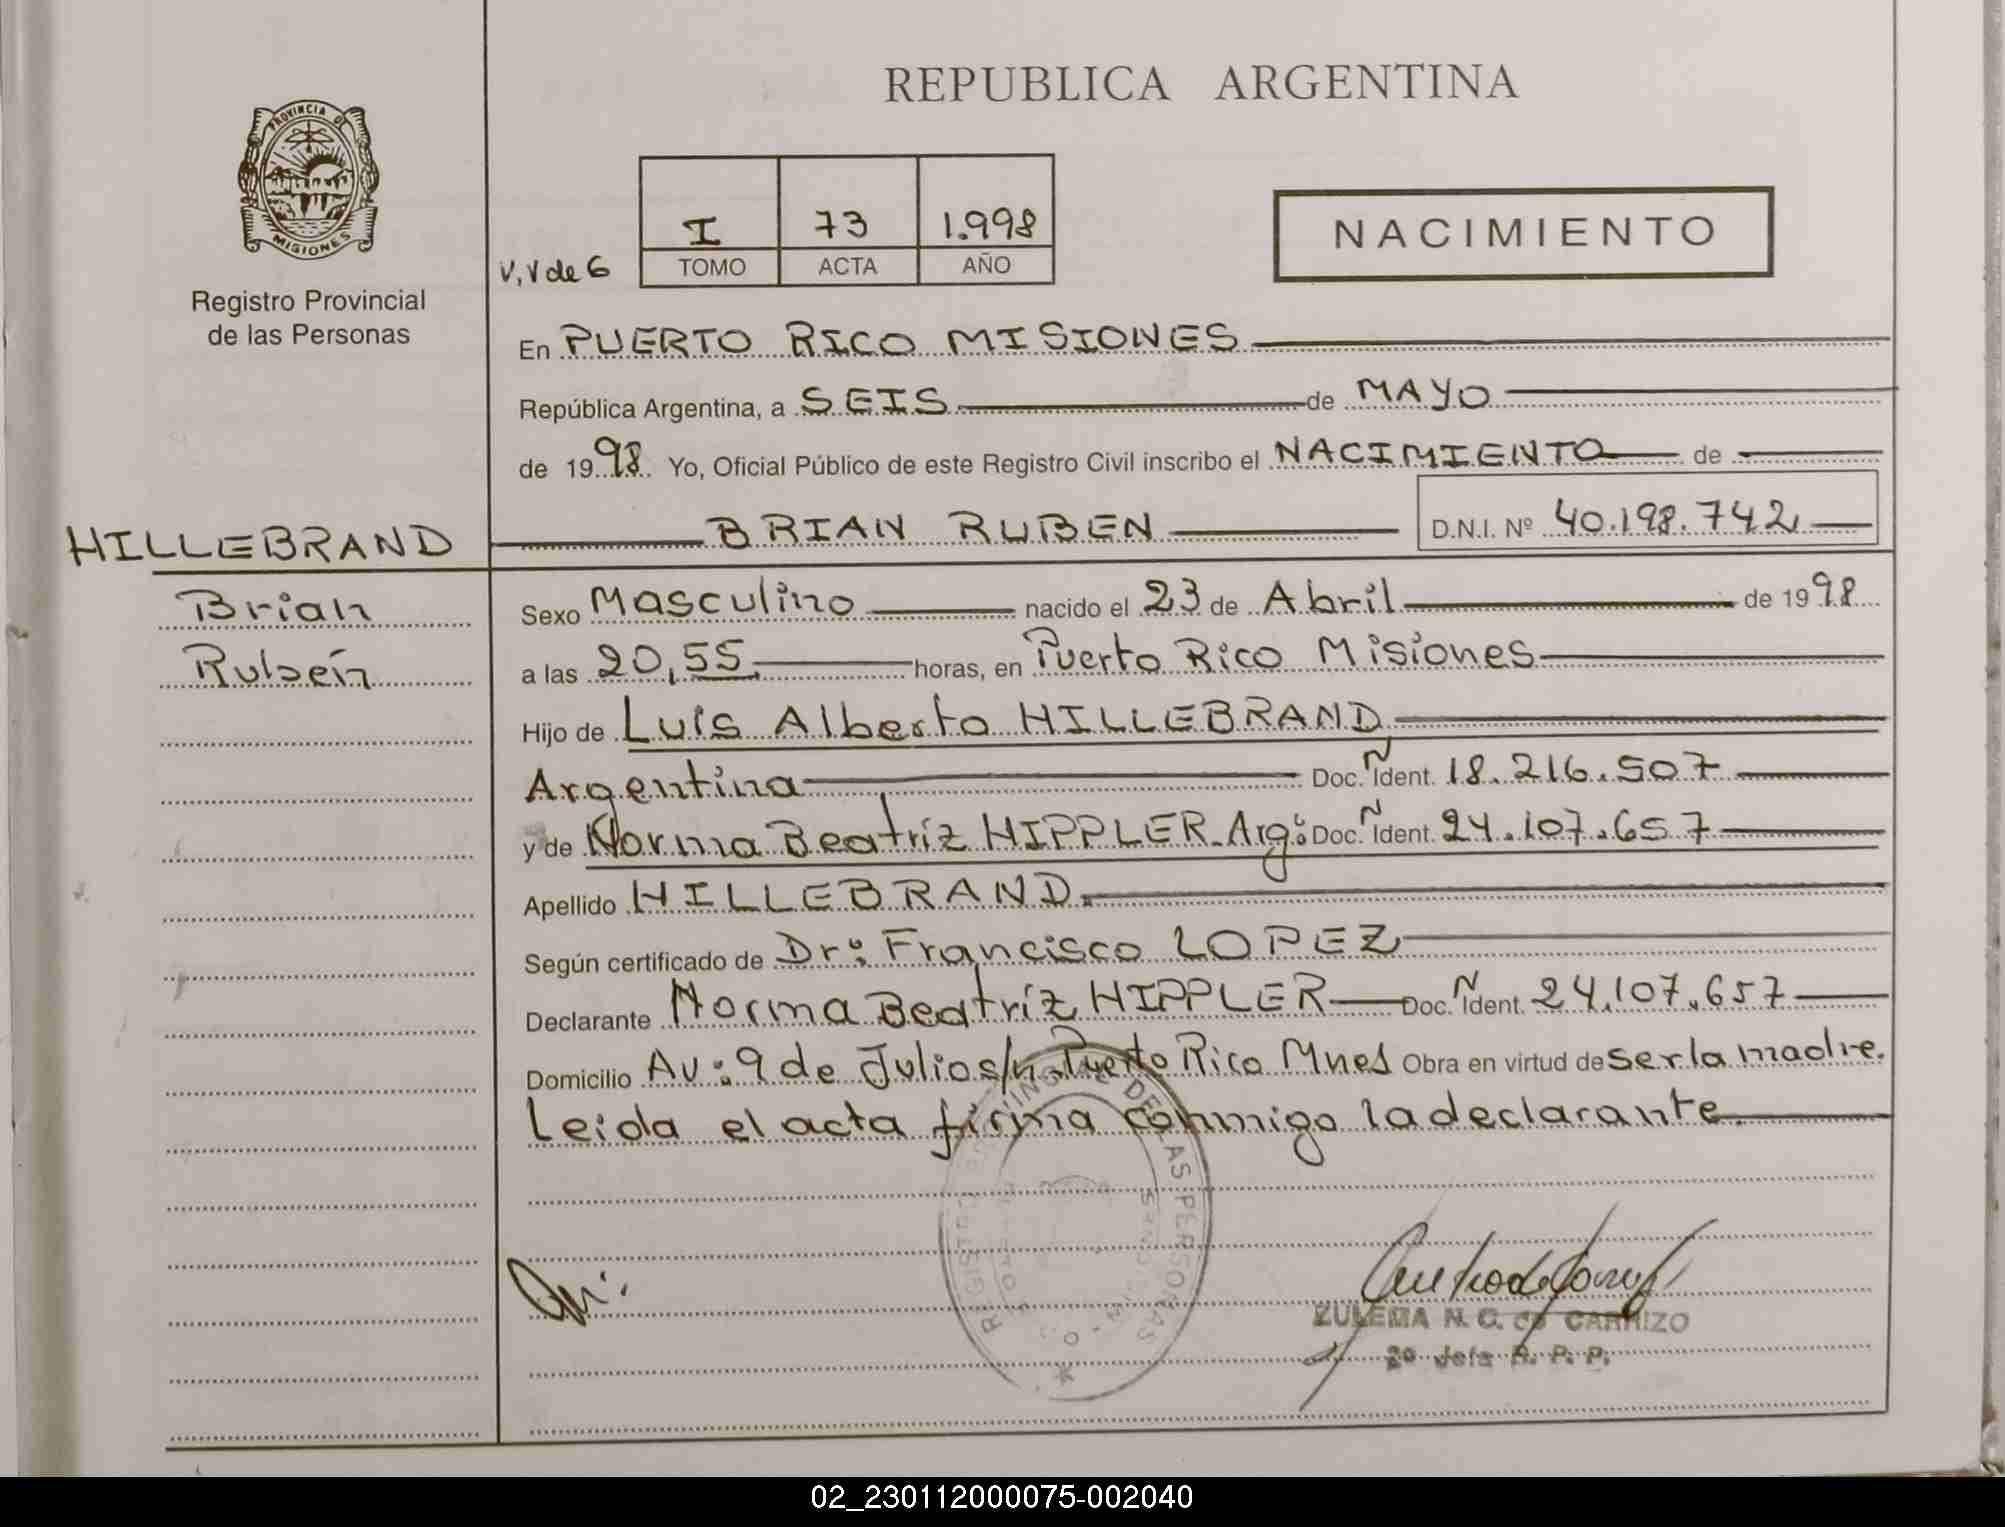 REPUBLICA ARGENTINA
PROVINCIA DE
MISIONES
Registro Provincial
de las Personas
V, V de 6
I 73 1.998
TOMO ACTA AÑO
NACIMIENTO
En PUERTO RICO MISIONES
República Argentina, a SEIS de MAYO
de 1998 Yo, Oficial Público de este Registro Civil inscribo el NACIMIENTO de
HILLEBRAND
BRIAN RUBEN D.N.I. Nº 40.198.742
Brian
Sexo Masculino nacido el 23 de Abril de 1998
Rubén
a las 20,55 horas, en Puerto Rico Misiones
Hijo de Luís Alberto HILLEBRAND
Argentina Doc. Ñ Ident. 18.216.507
y de Norma Beatríz HIPPLER-Arg: Doc. Ñ Ident. 24.107.657
Apellido HILLEBRAND
Según certificado de Dr: Francisco LOPEZ
Declarante Norma Beatríz HIPPLER Doc. Ñ Ident. 24.107.657
Domicilio Av: 9 de Julio s/n Puerto Rico Mnes Obra en virtud de ser la madre.
Leida el acta firma conmigo la declarante.
REGISTRO PROVINCIAL DE LAS PERSONAS
ZULEMA N. C. de CARRIZO
2º Jefa R. P. P.
02_230112000075-002040